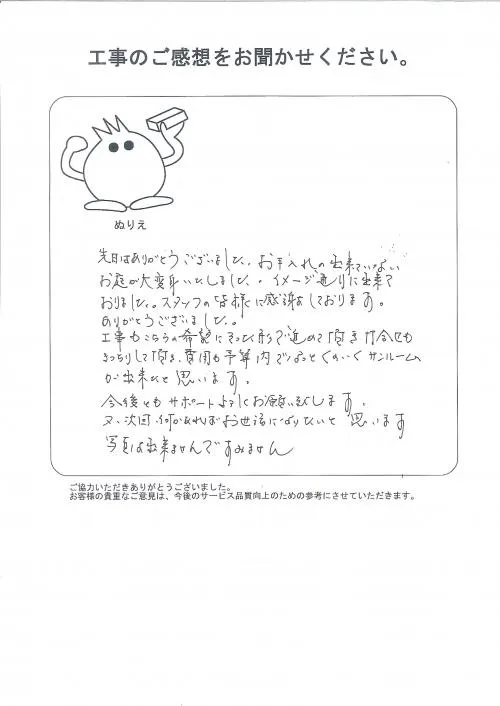 工事のご感想をお聞かせください。
ぬりえ
先日はありがとうございました。お手入れの出来ていない
お庭が大変身いたしました。イメージ通りに出来て
おりました。スタッフの皆様に感謝しております。
ありがとうございました。
工事もこちらの希望にそった形で進めて頂き
きっちりして頂き、費用も予算内でなっとくのいくサンルーム
が出来たと思います。
今後ともサポートよろしくお願い致します。
又、次回、何かあればお世話になりたいと思います
写真は出来ませんですみません
ご協力いただきありがとうございました。
お客様の貴重なご意見は、今後のサービス品質向上のための参考にさせていただきます。